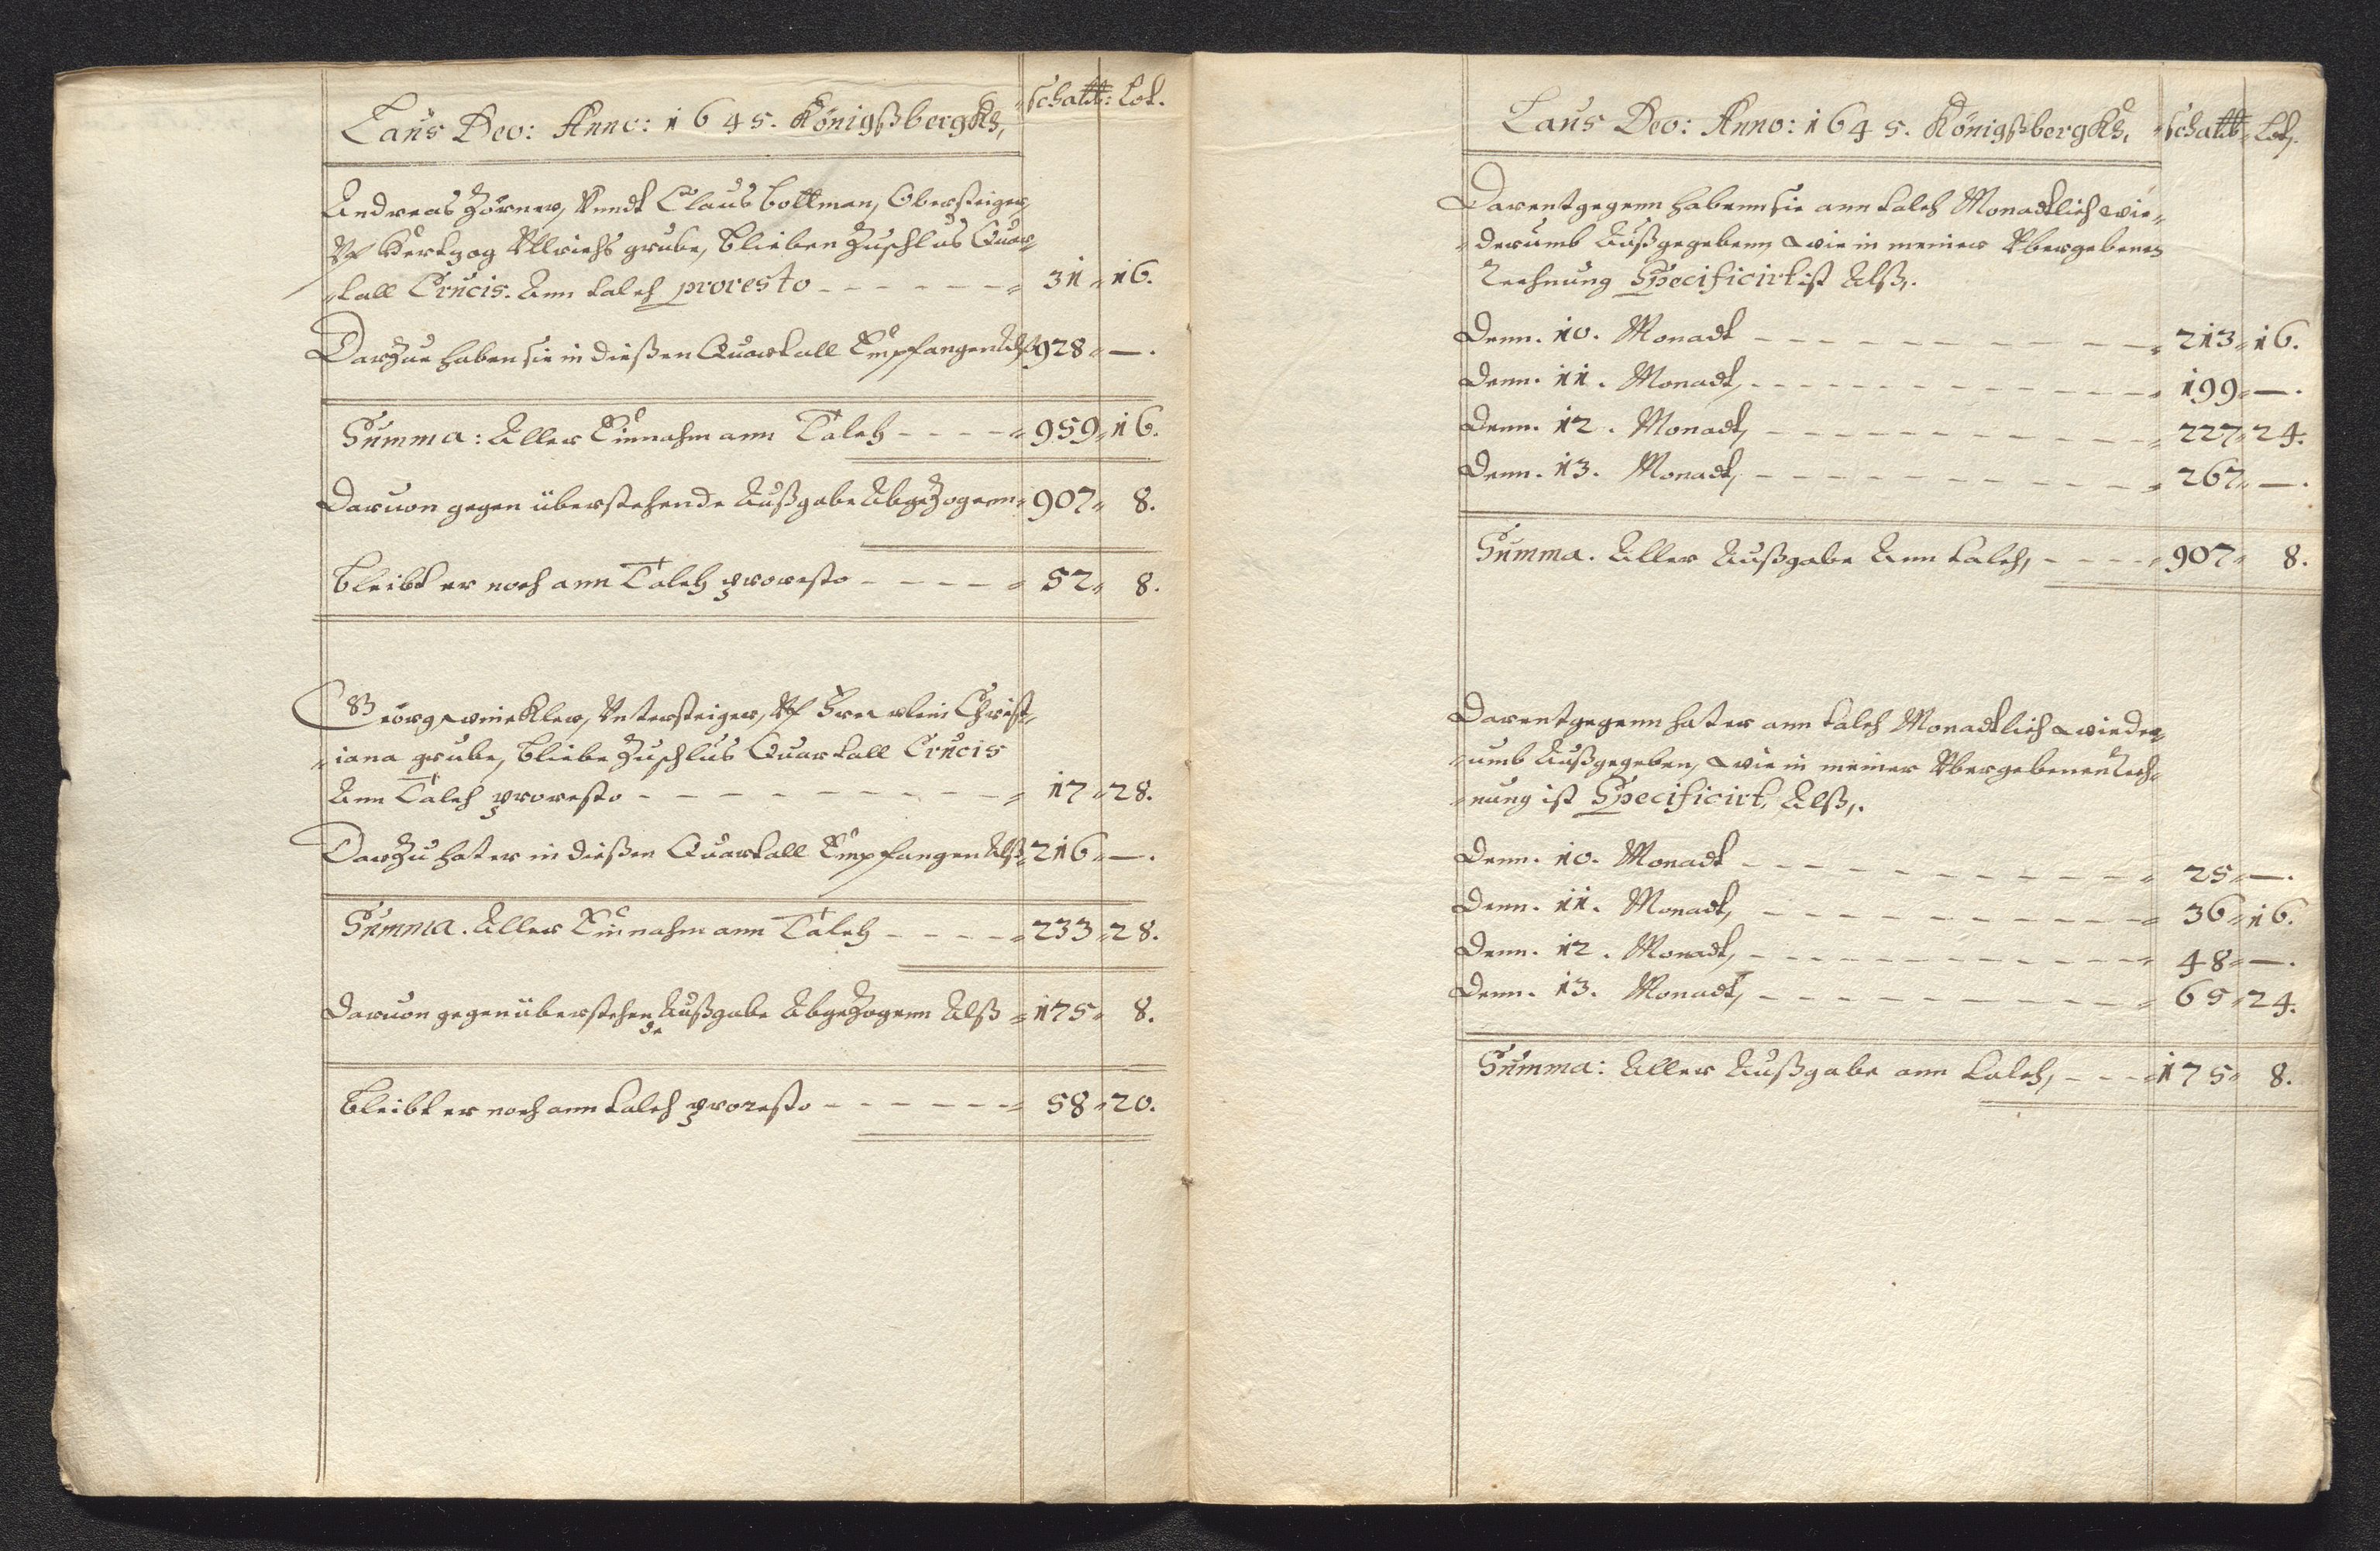 Laus Deo: Anno: 1645. Königßbergks, Schaltt: Lot.
Andreas Zörner, Vnndt Claus bottman, Obersteiger,
Vf Hertzog Vllrichs grube, blieben Zuschlus Quar-
tall Crucis. Ann talch pro resto - - - - - 31 16.
Darzue haben sie in dießen Quartall Empfangen Alß 928 —.
Summa: Aller Einnahm ann Talch - - - - 959 16.
Daruon gegen überstehende Außgabe Abgezogenn 907 8.
bleibt er noch ann Talch pro resto - - - - - 52 8.
Georg winckler, Vntersteiger, Vf Frewlein Christ-
iana grube, bliebe Zuschlus Quartall Crucis
Ann Talch pro resto - - - - - 17 28.
Darzu hat er in dießen Quartall Empfangen Alß 216 —.
Summa. Aller Einnahm ann Talch - - - - 233 28.
Daruon gegenüberstehende Außgabe Abgezogenn Alß 175 8.
bleibt er noch ann talch pro resto - - - - - 58 20.
Laus Deo: Anno: 1645. Königßbergks, Schaltt Lot.
Darentgegenn habenn sie ann talch Monadtlich wie-
derumb Außgegebenn, wie in meiner Vbergebenen
Rechnung Specificirt ist Alß,.
Denn. 10. Monadt - - - - - 213 16.
Denn. 11. Monadt, - - - - - 199 —.
Denn. 12. Monadt, - - - - - 227 24.
Denn. 13. Monadt, - - - - - 267 —.
Summa. Aller Außgabe Ann talch, - - - - 907 8.
Darentgegenn hat er ann talch Monadtlich wieder-
umb Außgegeben, wie in meiner Vbergebenen Rech-
nung ist Specificirt, Alß,.
Denn. 10. Monadt - - - - - 25 —.
Denn. 11. Monadt, - - - - - 36 16.
Denn. 12. Monadt, - - - - - 48 —.
Denn. 13. Monadt, - - - - - 65 24.
Summa: Aller Außgabe ann talch, - - - 175 8.